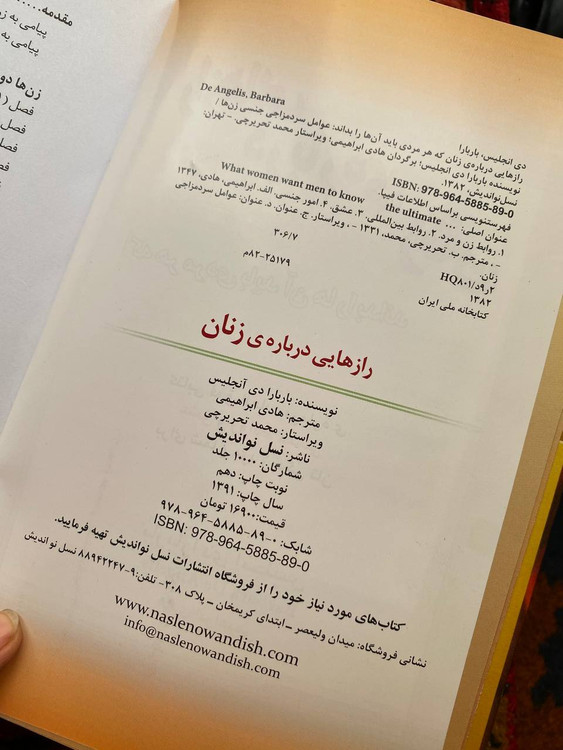 مقدمه......
پیامی به
پیامی به
زن‌ها دو
فصل (۱
فصل
فصل
De Angelis, Barbara
دی آنجلیس، باربارا
رازهایی درباره‌ی زنان که هر مردی باید آن‌ها را بداند: عوامل سردمزاجی جنسی زن‌ها /
نویسنده باربارا دی آنجلیس؛ برگردان هادی ابراهیمی؛ ویراستار محمد تحریرچی. - تهران:
نسل‌نواندیش، ۱۳۸۲.
ISBN: 978-964-5885-89-0
فهرستنویسی براساس اطلاعات فیپا.
عنوان اصلی: ... What women want men to know the ultimate
۱. روابط زن و مرد. ۲. روابط بین‌المللی. ۳. عشق. ۴. امور جنسی. الف. ابراهیمی، هادی، ۱۳۴۷
- ، مترجم. ب. تحریرچی، محمد، ۱۳۳۱ - ، ویراستار. ج. عنوان. د. عنوان: عوامل سردمزاجی
زنان.
۳۰۶/۷
۲ر۹د/HQ۸۰۱
۱۳۸۲
۸۲-۲۵۱۷۹م
کتابخانه ملی ایران
رازهایی درباره‌ی زنان
نویسنده: باربارا دی آنجلیس
مترجم: هادی ابراهیمی
ویراستار: محمد تحریرچی
ناشر: نسل نواندیش
شمارگان: ۱۰۰۰۰ جلد
نوبت چاپ: دهم
سال چاپ: ۱۳۹۱
قیمت: ۱۶۹۰۰ تومان
شابک: ۰-۸۹-۵۸۸۵-۹۶۴-۹۷۸
ISBN: 978-964-5885-89-0
کتاب‌های مورد نیاز خود را از فروشگاه انتشارات نسل نواندیش تهیه فرمایید.
نشانی فروشگاه: میدان ولیعصر ـ ابتدای کریمخان ـ پلاک ۳۰۸- تلفن: ۹-۸۸۹۴۲۲۴۷ نسل نو اندیش
www.naslenowandish.com
info@naslenowandish.com